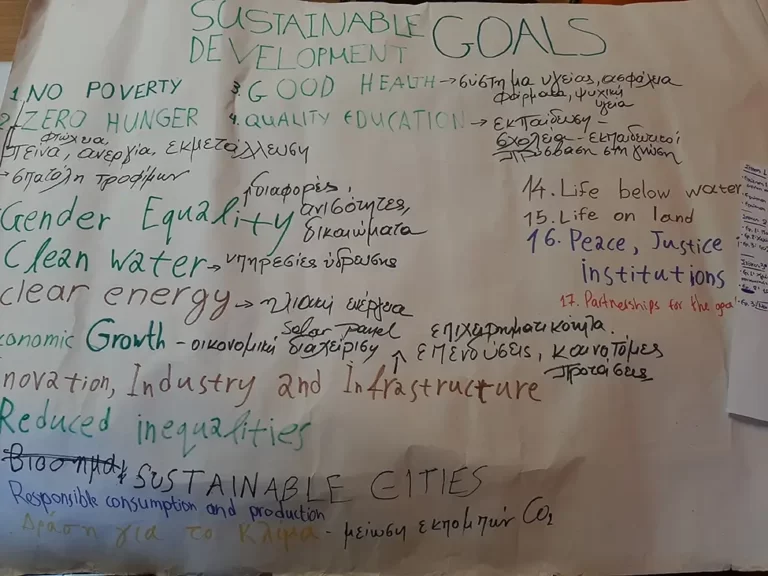 SUSTAINABLE
DEVELOPMENT GOALS
1. NO POVERTY
3. GOOD HEALTH → σύστημα υγείας, ασφάλεια
φάρμακα, ψυχική
υγεία
2 ZERO HUNGER
4. QUALITY EDUCATION → εκπαίδευση -
σχολεία - εκπαιδευτικοί
πρόσβαση στη γνώση
φτώχεια
πείνα, ανεργία, εκμετάλλευση
→ σπατάλη τροφίμων
Gender Equality
διαφορές,
ανισότητες,
δικαιώματα
Clean water → υπηρεσίες ύδρευσης
clear energy → ηλιακή ενέργεια
Solar panel
conomic Growth - οικονομική διαχείριση
επιχειρηματικότητα.
επενδύσεις, καινοτόμες
προτάσεις
novation, Industry and Infrastructure
Reduced inequalities
SUSTAINABLE CITIES
Responsible consumption and production
Δράση για το Κλίμα - μείωση εκπομπών CO2
14. Life below water
15. Life on land
16. Peace, Justice
institutions
17. Partnerships for the goa